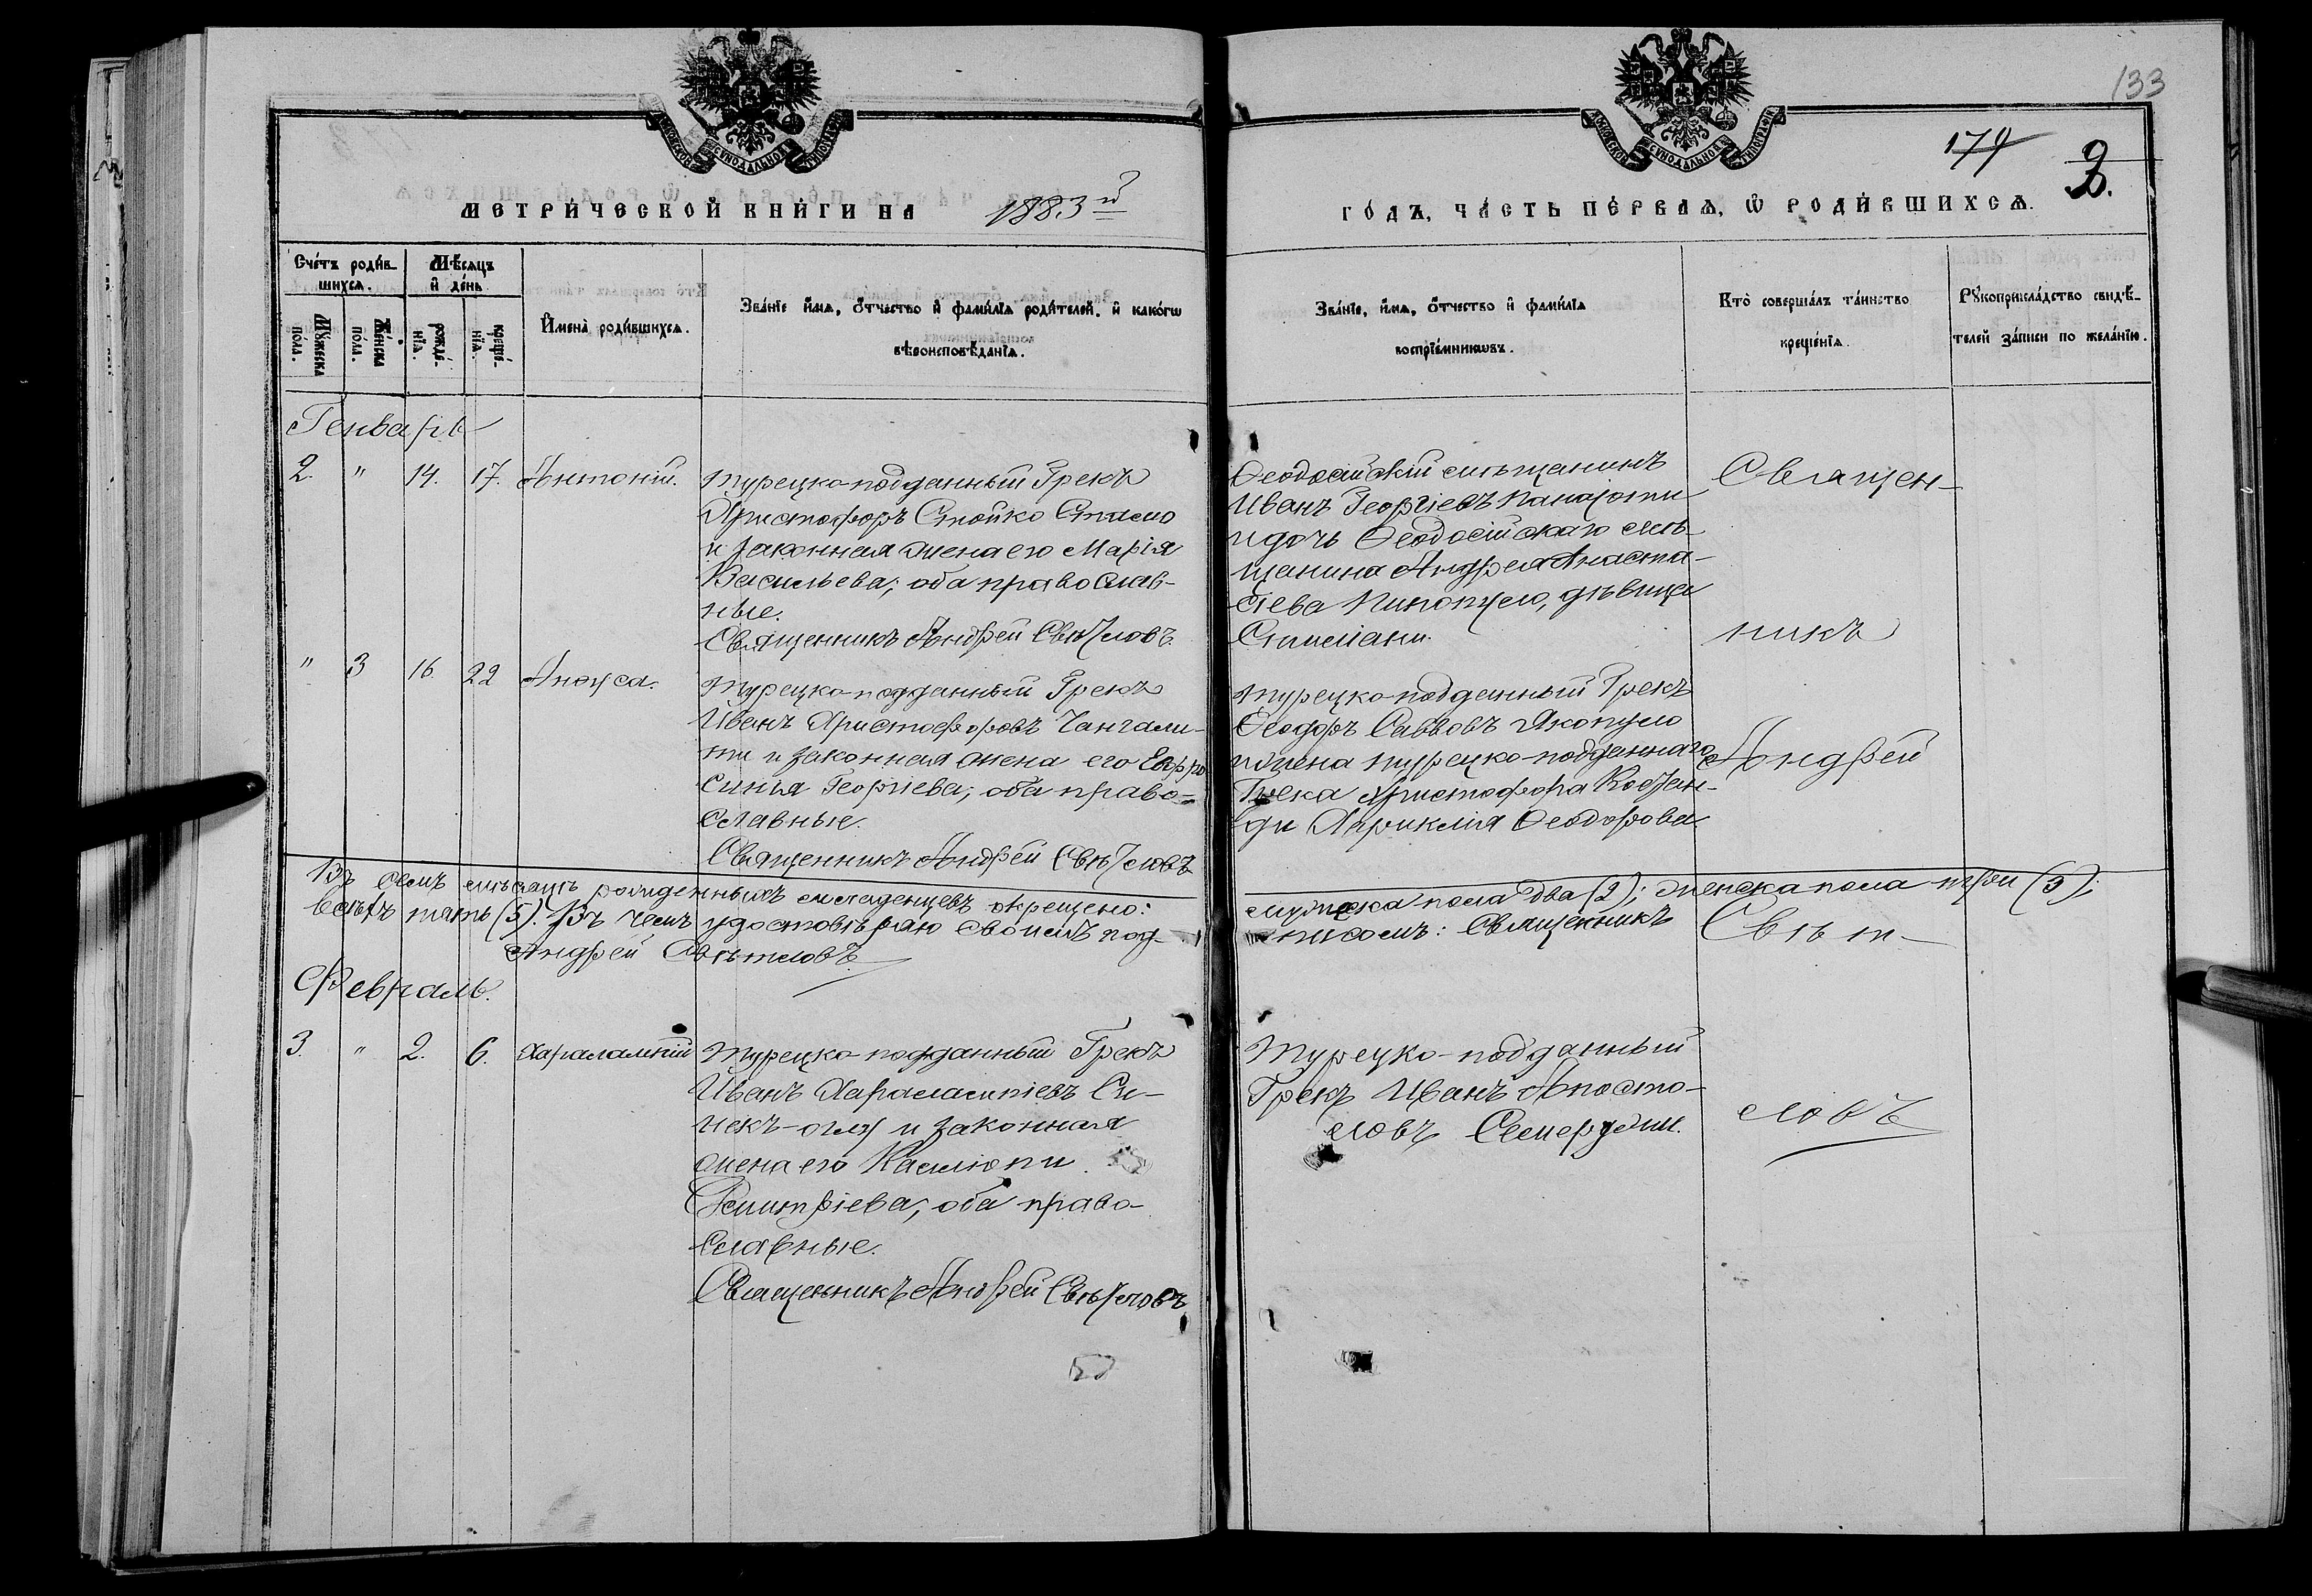 133
179
2.
МОСКОВСКОЙ СѴНОДАЛЬНОЙ ТИПОГРАФІИ
МОСКОВСКОЙ СѴНОДАЛЬНОЙ ТИПОГРАФІИ
МЕТРИ́ЧЕСКОЙ КНИ́ГИ НА 1883й
ГО́ДЪ, ЧА́СТЬ ПЕ́РВАѦ, Ѿ РОДИ́ВШИХСѦ.
Сче́тъ роди́в-
шихсѧ.
Мѣ́сѧцъ
и҆ де́нь
Мꙋ́жеска
по́ла.
Же́нска
по́ла.
рожде́-
нїѧ.
креще́-
нїѧ.
И҆мена̀ роди́вшихсѧ.
Зва́нїе и҆́мѧ, ѻ҆́тчество и҆ фами́лїѧ роди́телей, и҆ како́гѡ
вѣроисповѣ́данїѧ.
Зва́нїе, и҆́мѧ, ѻ҆́тчество и҆ фами́лїѧ
воспрїе́мникѡвъ.
Кто̀ соверша́лъ та́инство
креще́нїѧ.
Рꙋкоприкла́дство свидѣ́-
телей за́писи по жела́нїю.
Генварь
2. " 14. 17. Антоній.
Турецко-подданный Грекъ
Христофоръ Стойко Стамо
и законная жена его Марія
Васильева; оба православ-
ные.
Священникъ Андрей Свѣтловъ.
Ѳеодосійскій мѣщанинъ
Иванъ Георгіевъ Панаіоти
и дочь Ѳеодосійскаго мѣ-
щанина Андрея Анаста-
сіева Кинопуло, дѣвица
Стиліани.
Священ-
никъ
" 3 16. 22 Анѳуса.
Турецко-подданный Грекъ
Иванъ Христофоровъ Чангали-
ти и законная жена его Евфро
синья Георгіева; оба право-
славные.
Священникъ Андрей Свѣтловъ
Турецко-подданный Грекъ
Ѳеодоръ Саввовъ Якопуло
и жена турецко-подданнаго
Грека Христофора
Хариклія Ѳеодорова.
Андрей
Въ семъ мѣсяцѣ рожденныхъ младенцевъ окрещено:
мужеска пола два (2); женска пола три (3);
всѣхъ пять (5). Въ чемъ удостовѣряю своимъ под-
писомъ: Священникъ
Андрей Свѣтловъ.
Свѣт-
Февраль.
3. " 2. 6. Харалампій
Турецко-подданный Грекъ
Иванъ Харалампіевъ Си-
некъ-оглу и законная
жена его Калліопи
Димитріева; оба право-
славные.
Священникъ Андрей Свѣтловъ
Турецко-подданный
Грекъ Иванъ Апосто-
ловъ
ловъ